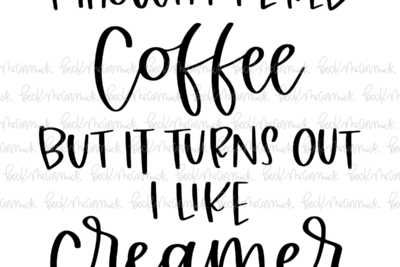 Coffee
BUT IT TURNS OUT
I LIKE
creamer